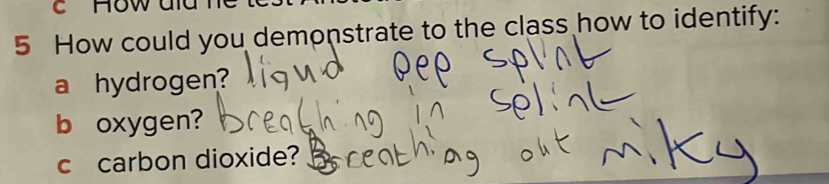 c How did he test
5 How could you demonstrate to the class how to identify:
a hydrogen? liqud pep splint
b oxygen? breathing in splint
c carbon dioxide? Breathing out miky